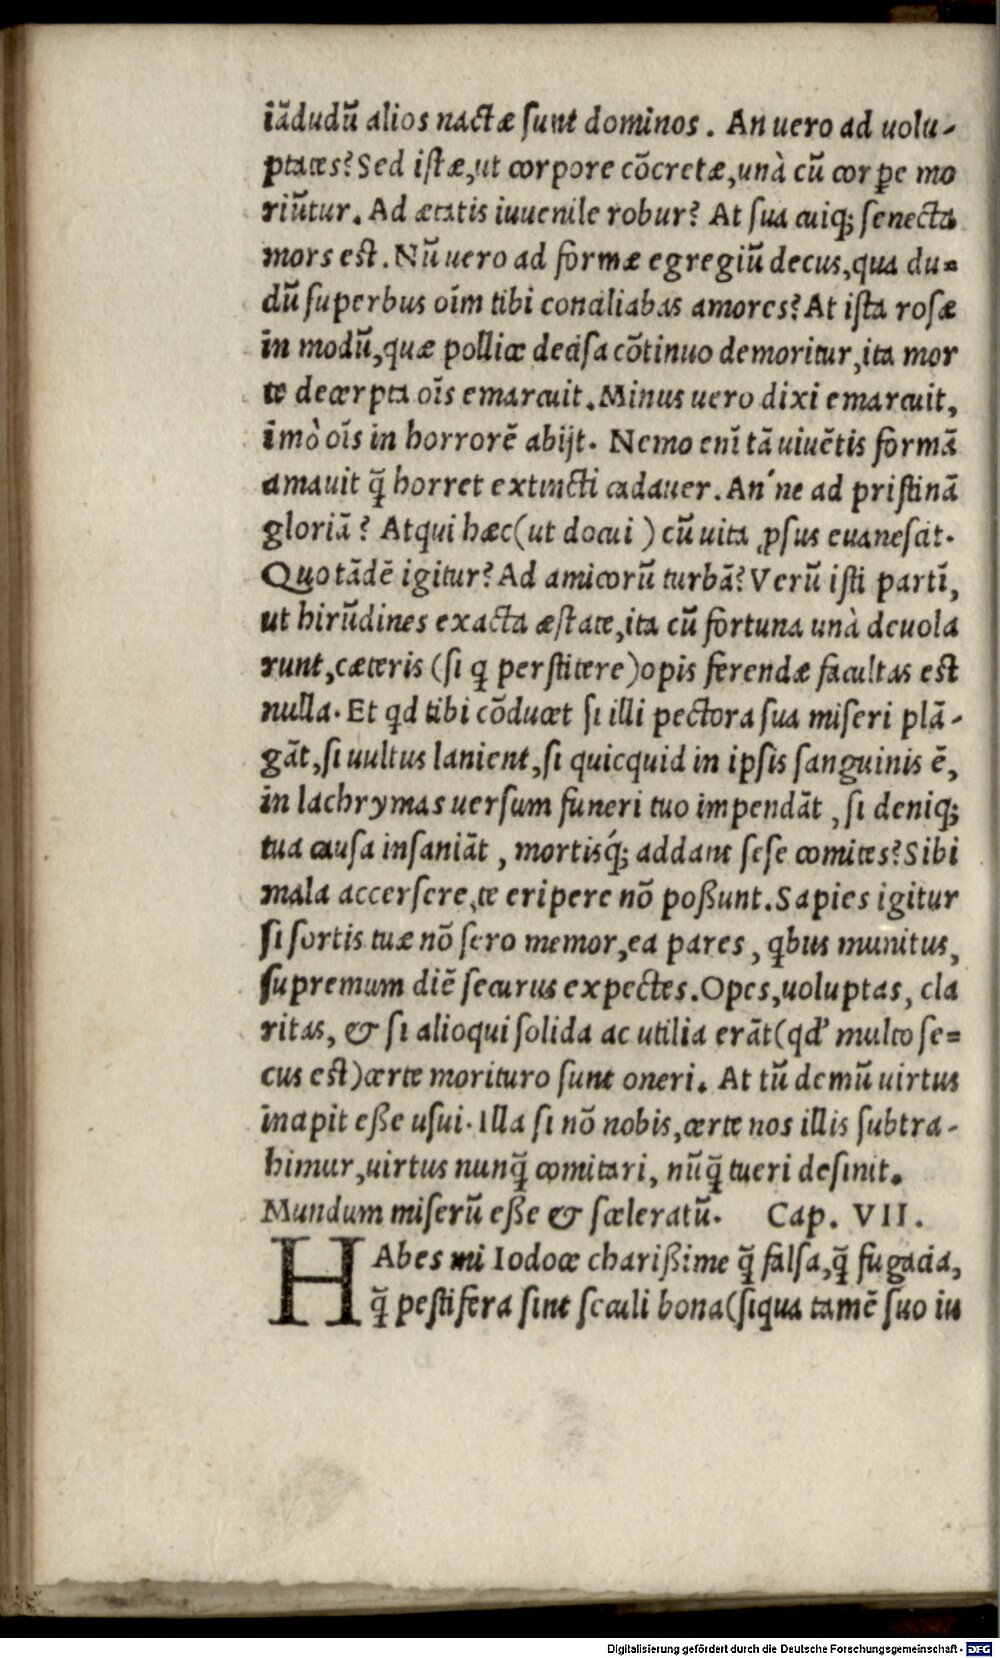 iādudū alios nactæ ſunt dominos. An uero ad uolu-
ptates? Sed iſtæ, ut corpore cōcretæ, unà cū corꝑe mo
riūtur. Ad ætatis iuuenile robur? At ſua cuiq; ſenecta
mors eſt. Nū uero ad formæ egregiū decus, qua du=
dū ſuperbus oīm tibi conciliabas amores? At iſta roſæ
in modū, quæ pollice deciſa cōtinuo demoritur, ita mor
te decerpta oīs emarcuit. Minus uero dixi emarcuit,
imò oīs in horrorē abijt. Nemo enī tā uiuētis formā
amauit q̄ horret extincti cadauer. An´ne ad priſtinā
gloriā? Atqui hæc (ut docui) cū uita ꝓſus euaneſcit.
Quo tādē igitur? Ad amicorū turbā? Verū iſti partī,
ut hirūdines exacta æſtate, ita cū fortuna unà deuola
runt, cæteris (ſi q perſtitere) opis ferendæ facultas eſt
nulla. Et qd tibi cōducet ſi illi pectora ſua miſeri plā-
gāt, ſi uultus lanient, ſi quicquid in ipſis ſanguinis ē,
in lachrymas uerſum funeri tuo impendāt, ſi deniq;
tua cauſa inſaniāt, mortisq́; addant ſeſe comites? Sibi
mala accerſere, te eripere nō poßunt. Sapies igitur
ſi ſortis tuæ nō ſero memor, ea pares, qbus munitus,
ſupremum diē ſecurus expectes. Opes, uoluptas, cla
ritas, & ſi alioqui ſolida ac utilia erāt (qd' multo ſe=
cus eſt) certe morituro ſunt oneri. At tū demū uirtus
incipit eße uſui. Illa ſi nō nobis, certe nos illis ſubtra-
himur, uirtus nunq̄ comitari, nūq̄ tueri deſinit.
Mundum miſerū eße & ſceleratū. Cap. VII.
HAbes mi Iodoce charißime q̄ falſa, q̄ fugacia,
q̄ peſtifera ſint ſeculi bona (ſiqua tamē ſuo iu
Digitalisierung gefördert durch die Deutsche Forschungsgemeinschaft - DFG